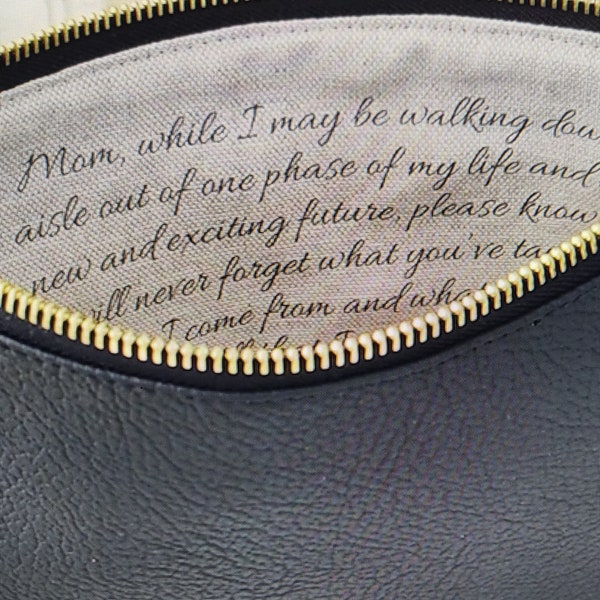 Mom, while I may be walking dow
aisle out of one phase of my life and
new and exciting future, please know
will never forget what you've ta
I come from and wha